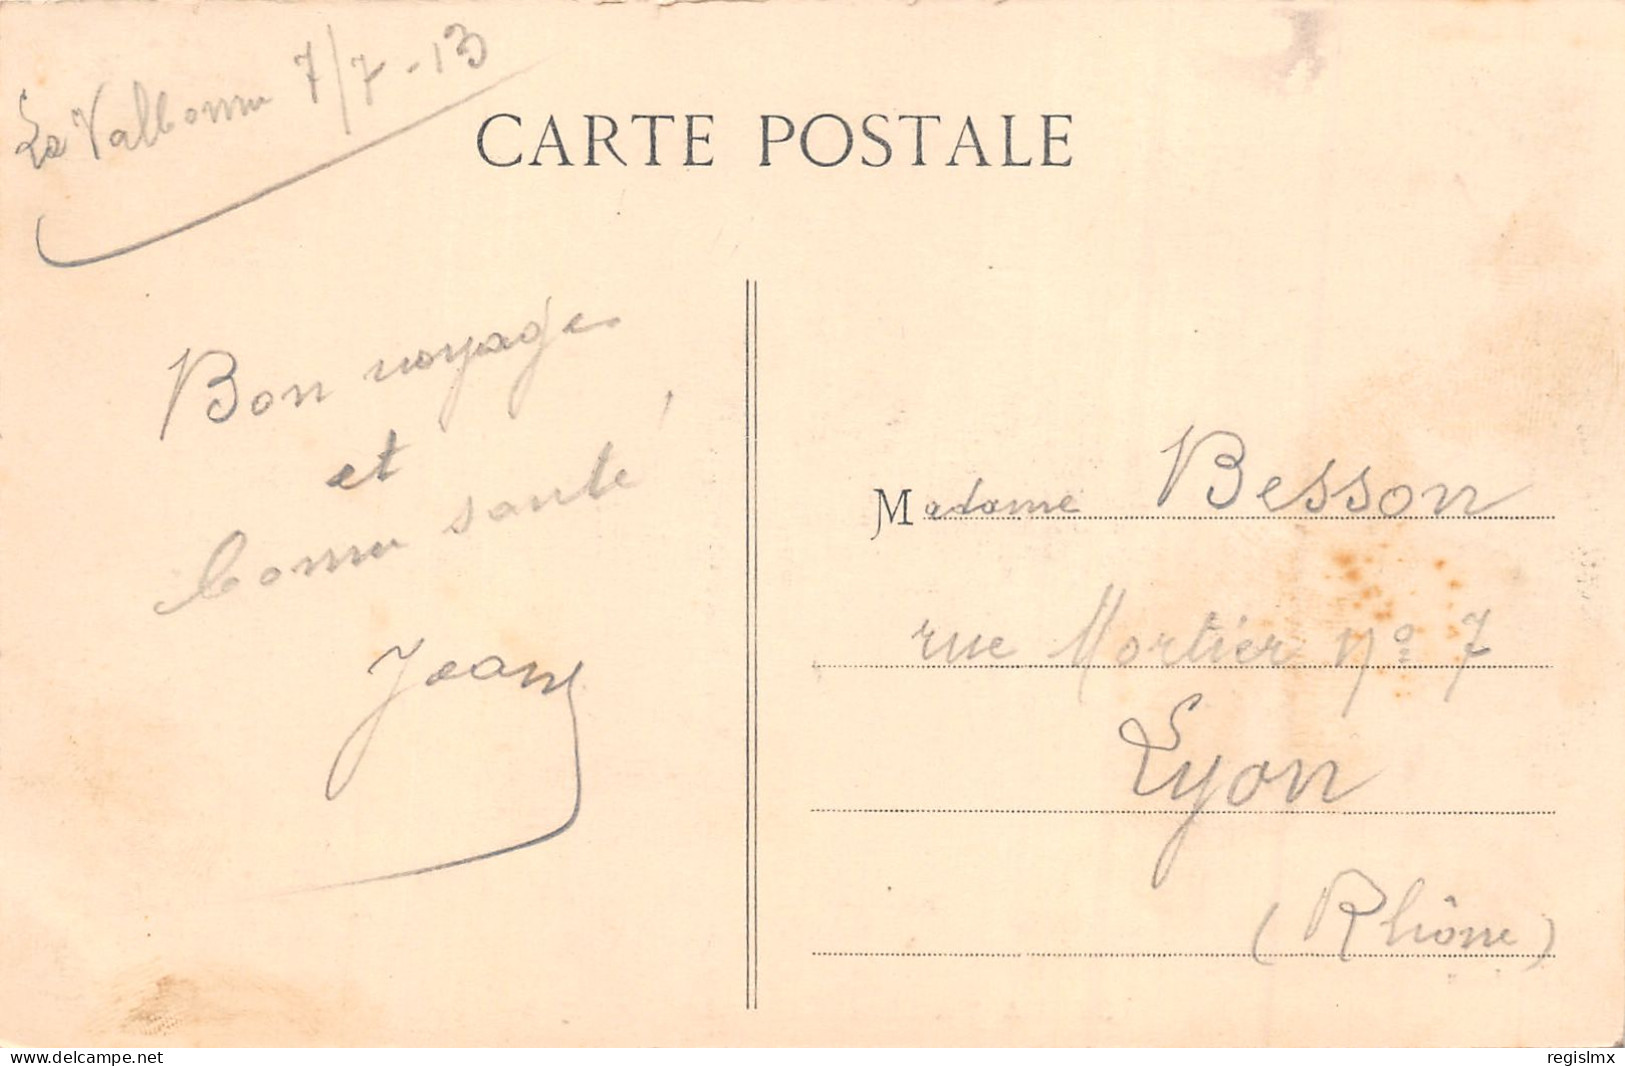 La Valbonne 7/7-13
CARTE POSTALE
Bon voyage
et
bonne santé
Jean
Madame Besson
rue Mortier N° 7
Lyon
(Rhône)
www.delcampe.net
regislmx